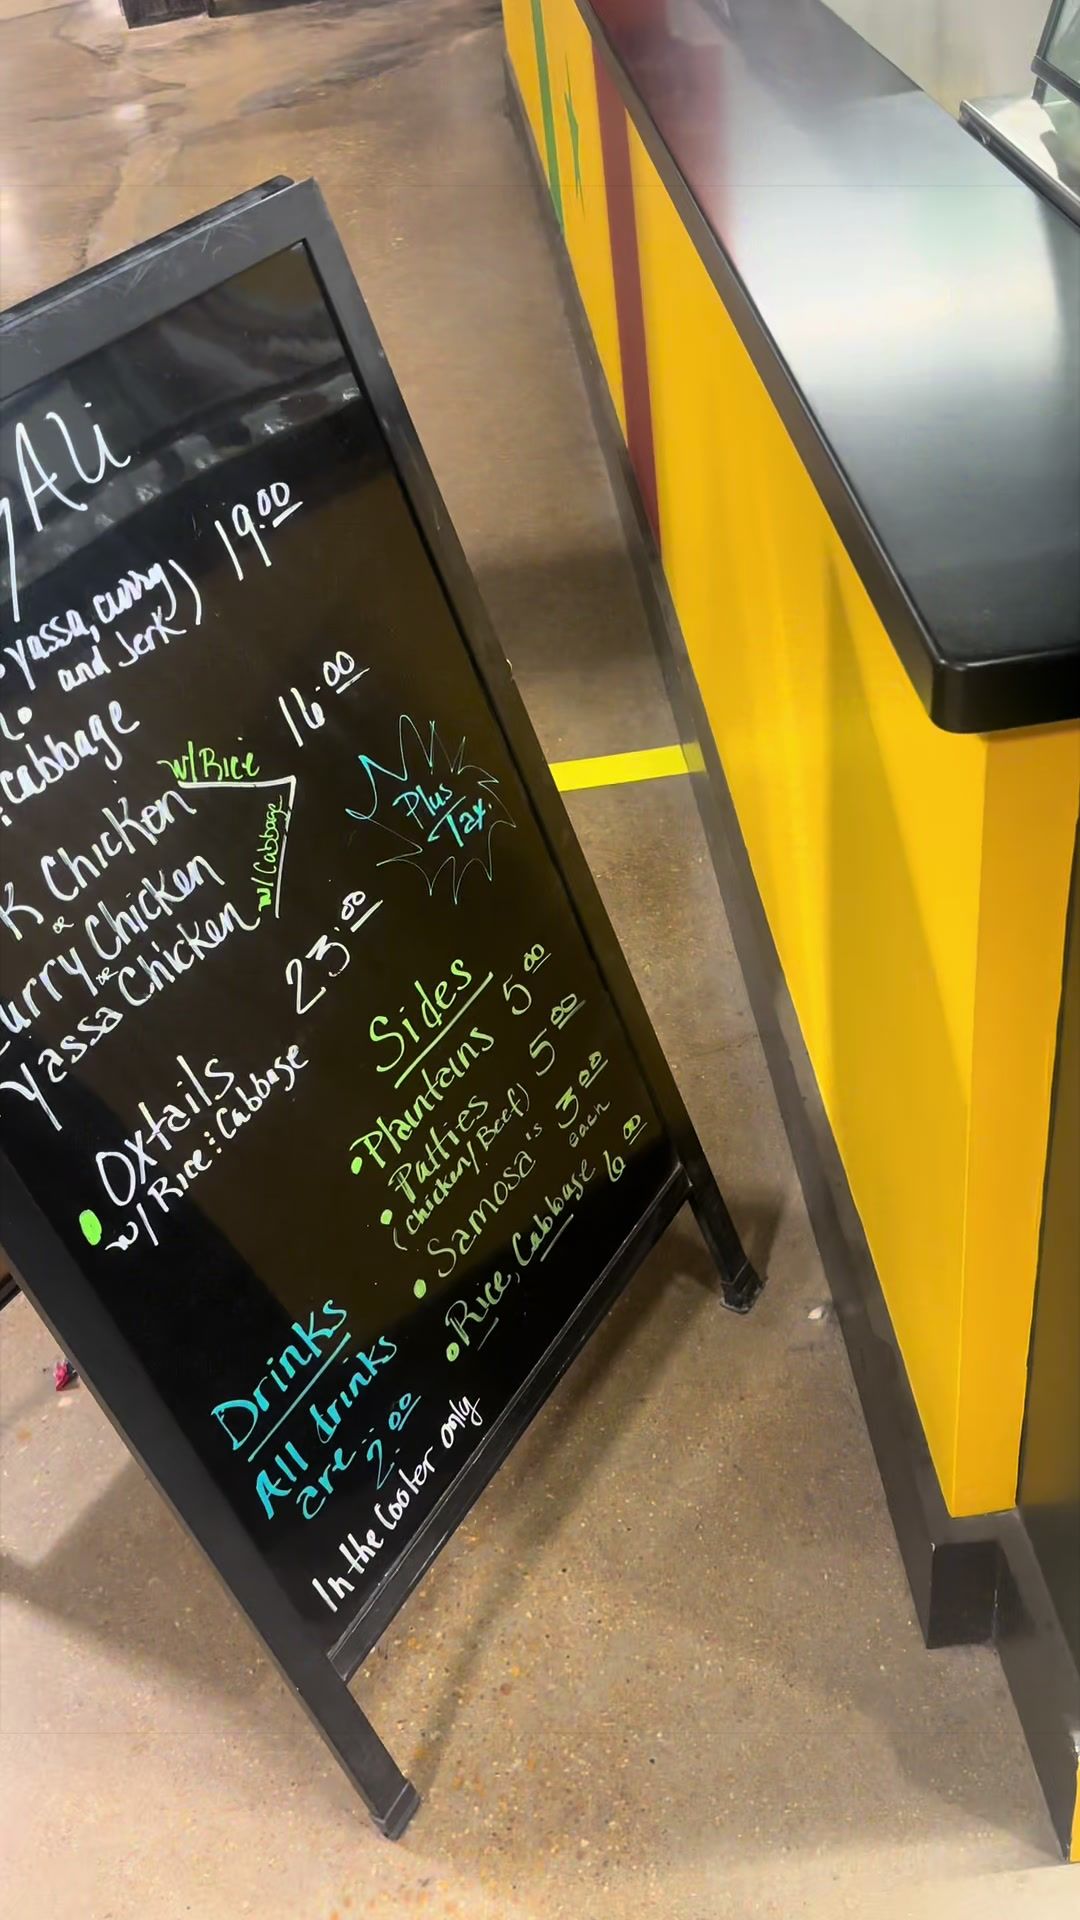 Ali
yassa, curry) 19.00
and Jerk)
cabbage
16.00
w/Rice
w/Cabbage
Plus
Tax
Chicken
or
Curry Chicken
or
Yassa Chicken
23.00
• Oxtails
w/Rice : Cabbage
Sides
• Plantains 5 00
• Patties 5 00
(chicken/Beef)
• Samosa's 3 00
each
• Rice, Cabbage 6 00
Drinks
All drinks
are 2.00
In the Cooler only